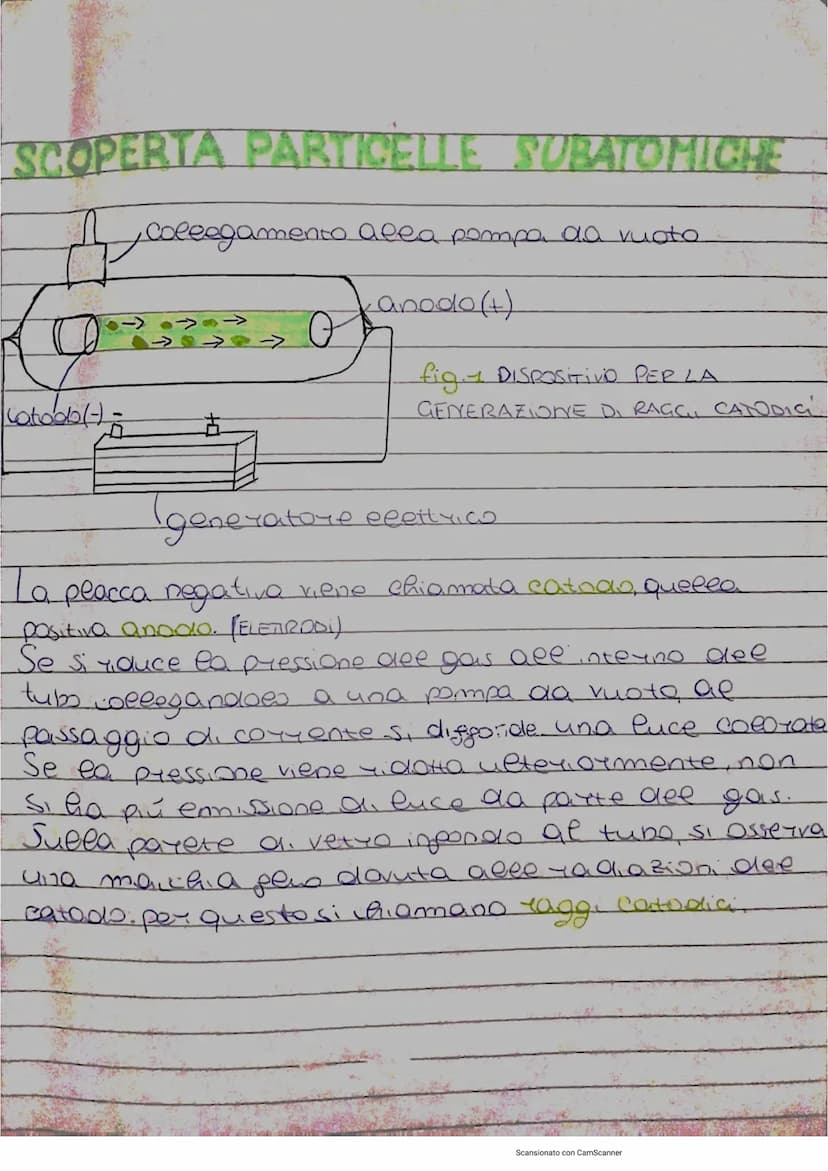 SCOPERTA PARTICELLE SUBATOMICHE
collegamento alla pompa da vuoto
anodo (+)
fig. 1 DISPOSITIVO PER LA
GENERAZIONE DI RAGGI CATODICI
catodo (-)
-
+
generatore elettrico
La placca negativa viene chiamata catodo, quella
positiva anodo. (ELETTRODI)
Se si riduce la pressione del gas all'interno del
tubo collegandolo a una pompa da vuoto, al
passaggio di corrente si diffonde una luce colorata
Se la pressione viene ridotta ulteriormente, non
si ha più emissione di luce da parte del gas.
Sulla parete di vetro in fondo al tubo, si osserva
una macchia però dovuta alle radiazioni del
catodo. per questo si chiamano raggi catodici.
Scansionato con CamScanner